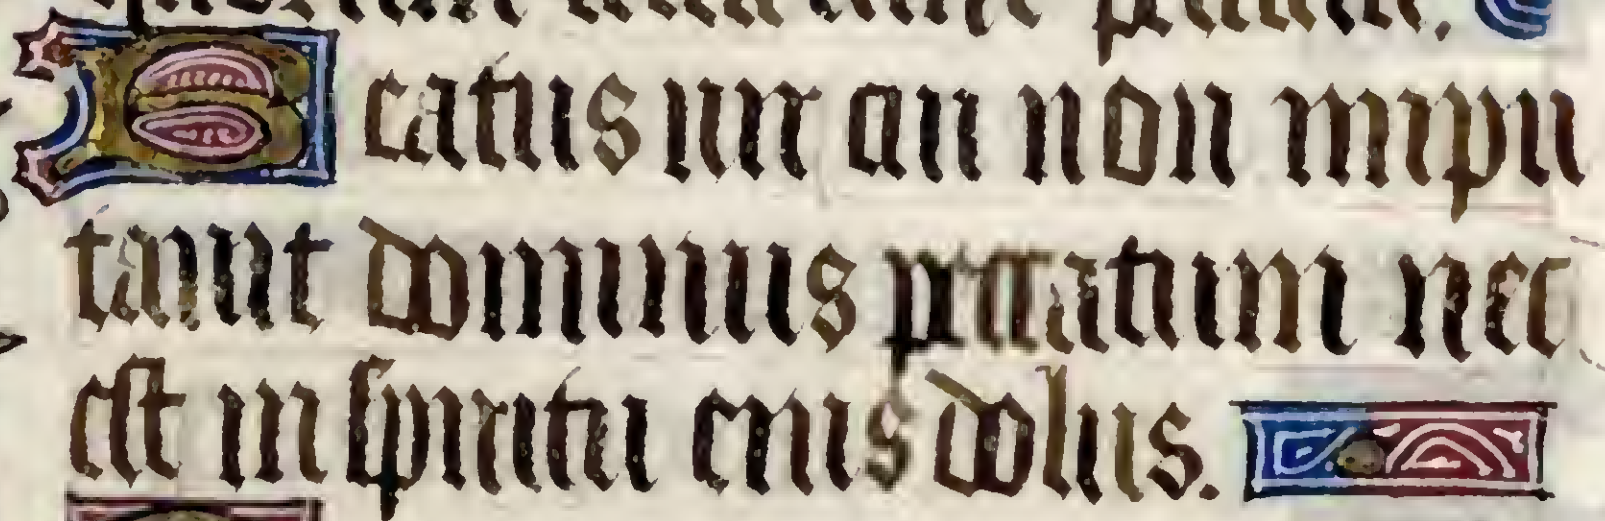 Beatus uir cui non impu
tauit dominus peccatum nec
est in spiritu eius dolus.